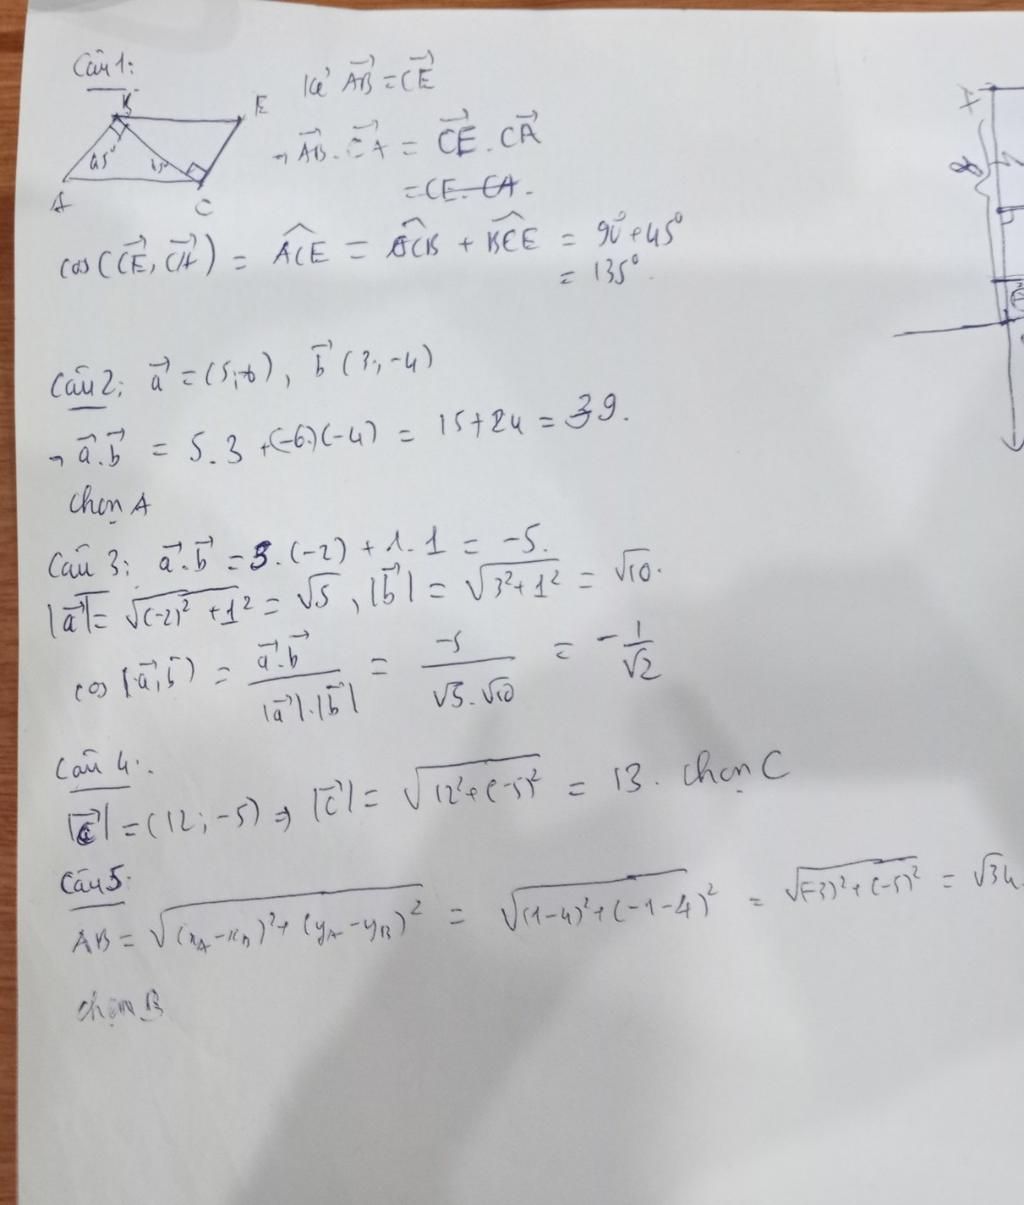 Câu 1:
B E
45° 45°
A C
Kẻ AB⃗ = CE⃗
→ AB⃗ . CA⃗ = CE⃗ . CA⃗
= CE . CA .
cos (CE⃗, CA⃗) = ACE = ACB + BCE = 90° + 45°
= 135° .
Câu 2: a⃗ = (5;-6), b⃗ (3;-4)
→ a⃗.b⃗ = 5.3 + (-6)(-4) = 15+24 = 39.
Chọn A
Câu 3: a⃗.b⃗ = 3.(-2) + 1.1 = -5.
|a⃗| = √((-2)² + 1²) = √5, |b⃗| = √(3² + 1²) = √10.
cos (a⃗;b⃗) = a⃗.b⃗ / |a⃗|.|b⃗| = -5 / √5.√10 = - 1/√2
Câu 4:
|c⃗| = (12;-5) ⇒ |c⃗| = √(12² + (-5)²) = 13. Chọn C
Câu 5:
AB = √((x_A - x_B)² + (y_A - y_B)²) = √((1-4)² + (-1-4)²) = √((-3)² + (-5)²) = √34.
chọn B
A
8